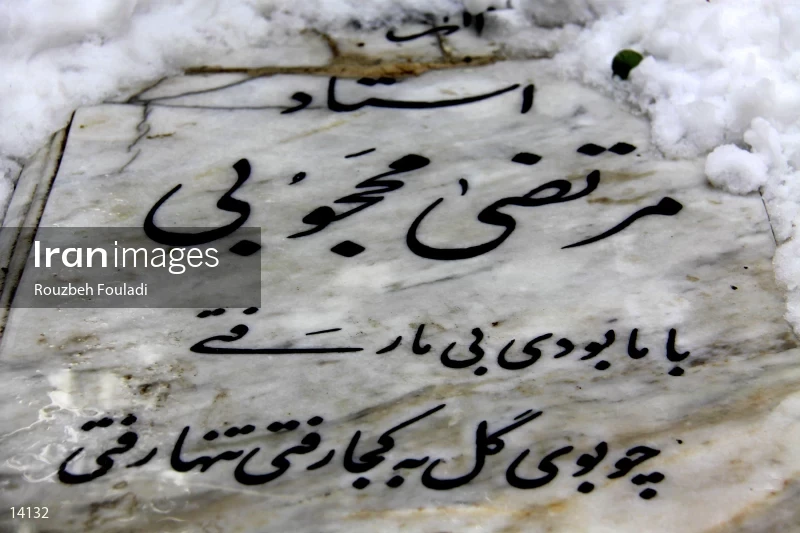 استاد
مرتضیٰ محجوبی
با ما بودی بی ما رفتی
چو بوی گل به کجا رفتی تنها رفتی
Iranimages
Rouzbeh Fouladi
14132